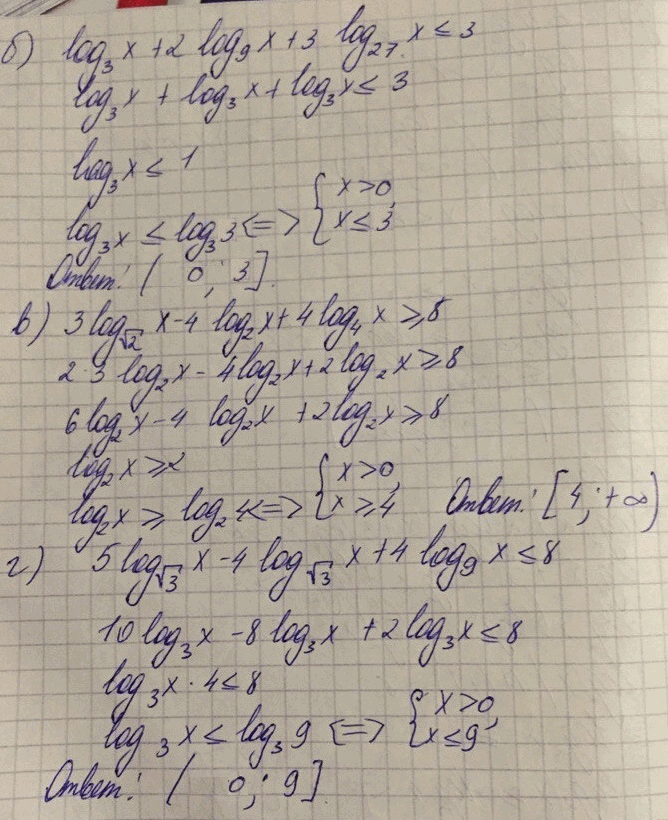 б) log₃ x + 2 log₉ x + 3 log₂₇ x ≤ 3
log₃ x + log₃ x + log₃ x ≤ 3
log₃ x ≤ 1
log₃ x ≤ log₃ 3 <=> { x > 0, x ≤ 3
Ответ: ( 0; 3].
в) 3 log_√2 x - 4 log₂ x + 4 log₄ x ≥ 8
2·3 log₂ x - 4 log₂ x + 2 log₂ x ≥ 8
6 log₂ x - 4 log₂ x + 2 log₂ x ≥ 8
log₂ x ≥ 2
log₂ x ≥ log₂ 4 <=> { x > 0, x ≥ 4 Ответ: [4; +∞)
г) 5 log_√3 x - 4 log_√3 x + 4 log₉ x ≤ 8
10 log₃ x - 8 log₃ x + 2 log₃ x ≤ 8
log₃ x · 4 ≤ 8
log₃ x ≤ log₃ 9 <=> { x > 0, x ≤ 9
Ответ: ( 0; 9]